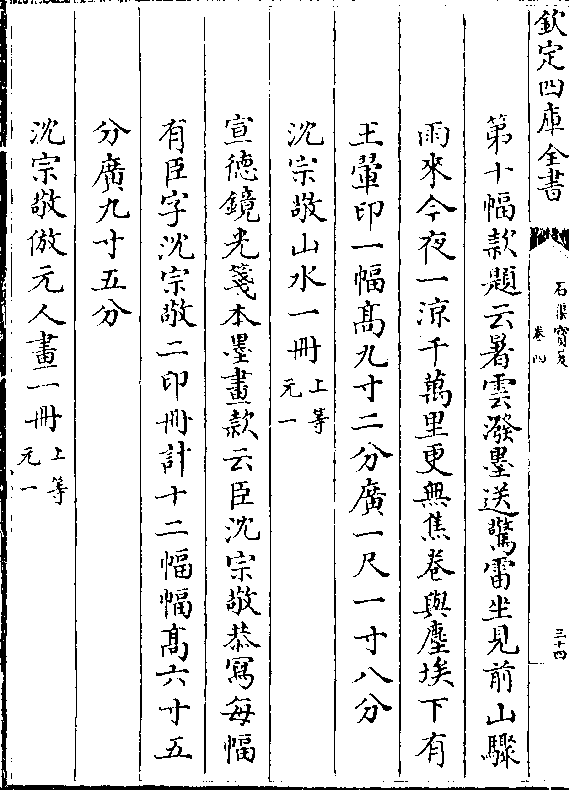 欽定四庫全書
石渠寳笈
卷四
三十四
第十幅款題云暑雲潑墨送驚雷坐見前山驟
雨來今夜一涼千萬里更無焦卷與塵埃下有
王翬印一幅髙九寸二分廣一尺一寸八分
沈宗敬山水一冊上等
元一
宣德鏡光箋本墨畫款云臣沈宗敬恭寫每幅
有臣字沈宗敬二印冊計十二幅幅髙六寸五
分廣九寸五分
沈宗敬倣元人畫一冊上等
元一